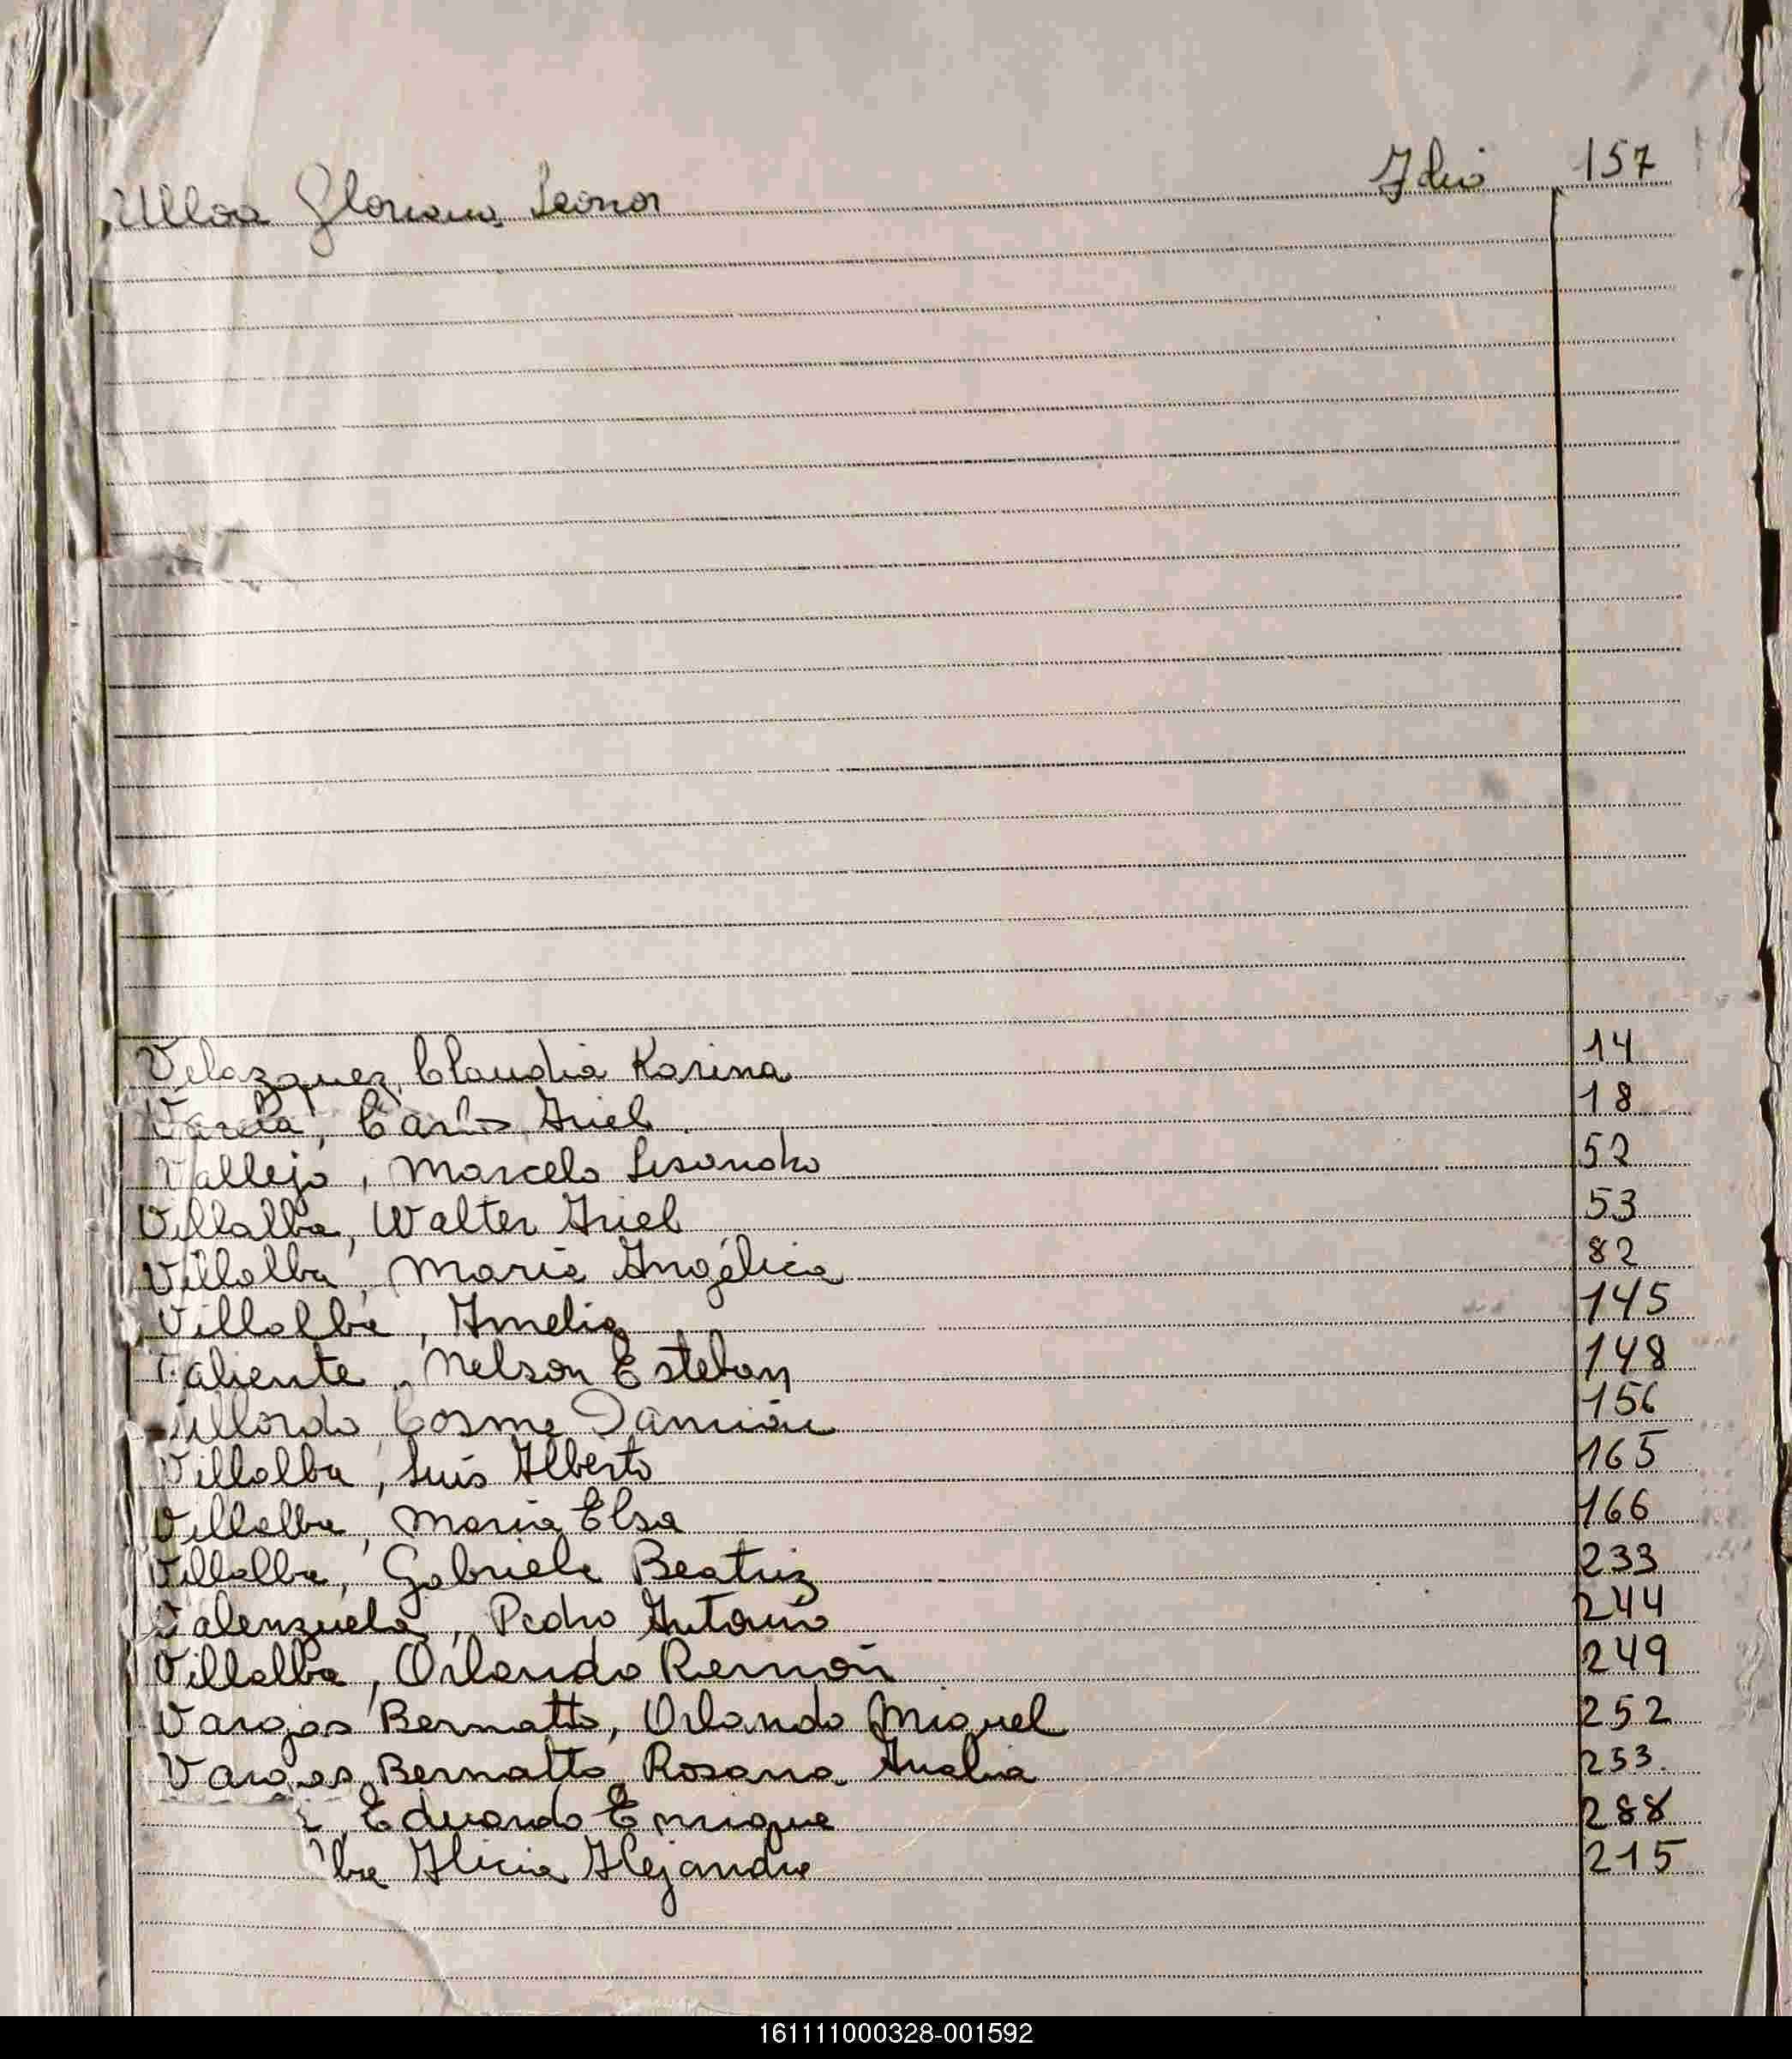 Ulloa Gloriana Leonor 157
Velazquez, Claudia Karina 14
Varela, Carlos Ariel 18
Vallejo, Marcelo Lisandro 52
Villalba, Walter Ariel 53
Villalba, Maria Angélica 82
Villalba, Amelia 145
Valiente, Nelson Esteban 148
Villordo Cosme Damián 156
Villalba, Luis Alberto 165
Villalba, Maria Elsa 166
Villalba, Gabriela Beatriz 233
Valenzuela, Pedro Antonio 244
Villalba, Orlando Ramón 249
Vargas Bernatto, Orlando Miguel 252
Vargas Bernatto Rosana Analia 253
Eduardo Enrique 288
lba Alicia Alejandra 215
161111000328-001592